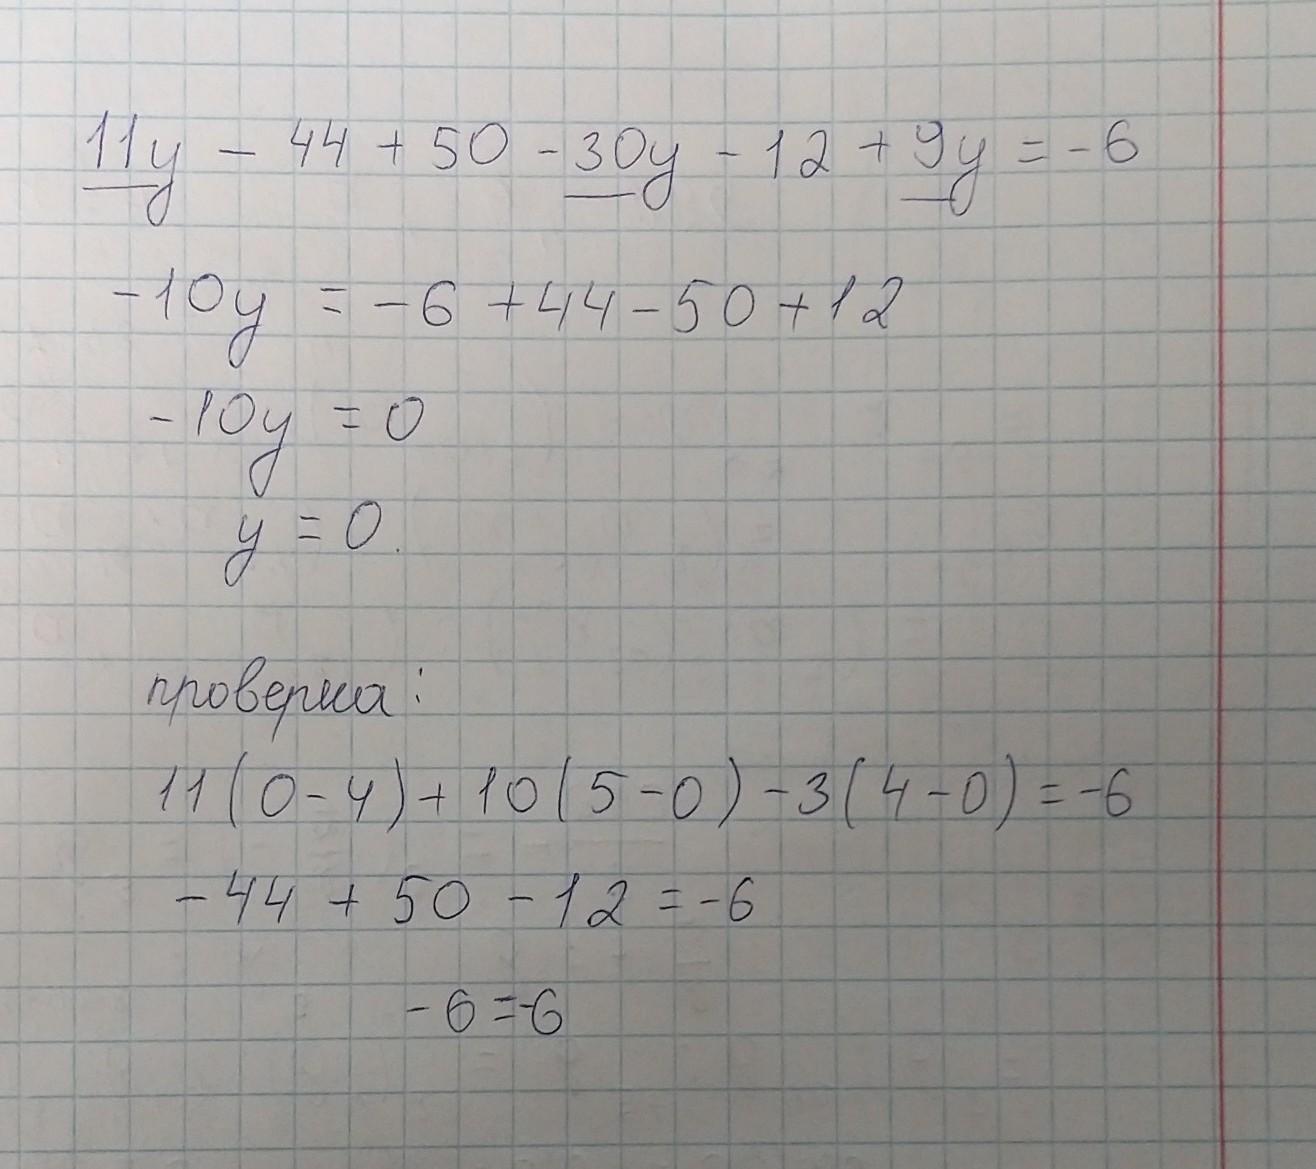 11y - 44 + 50 - 30y - 12 + 9y = -6
-10y = -6 + 44 - 50 + 12
-10y = 0
y = 0.
проверка:
11(0-4) + 10(5-0) - 3(4-0) = -6
-44 + 50 - 12 = -6
-6 = -6